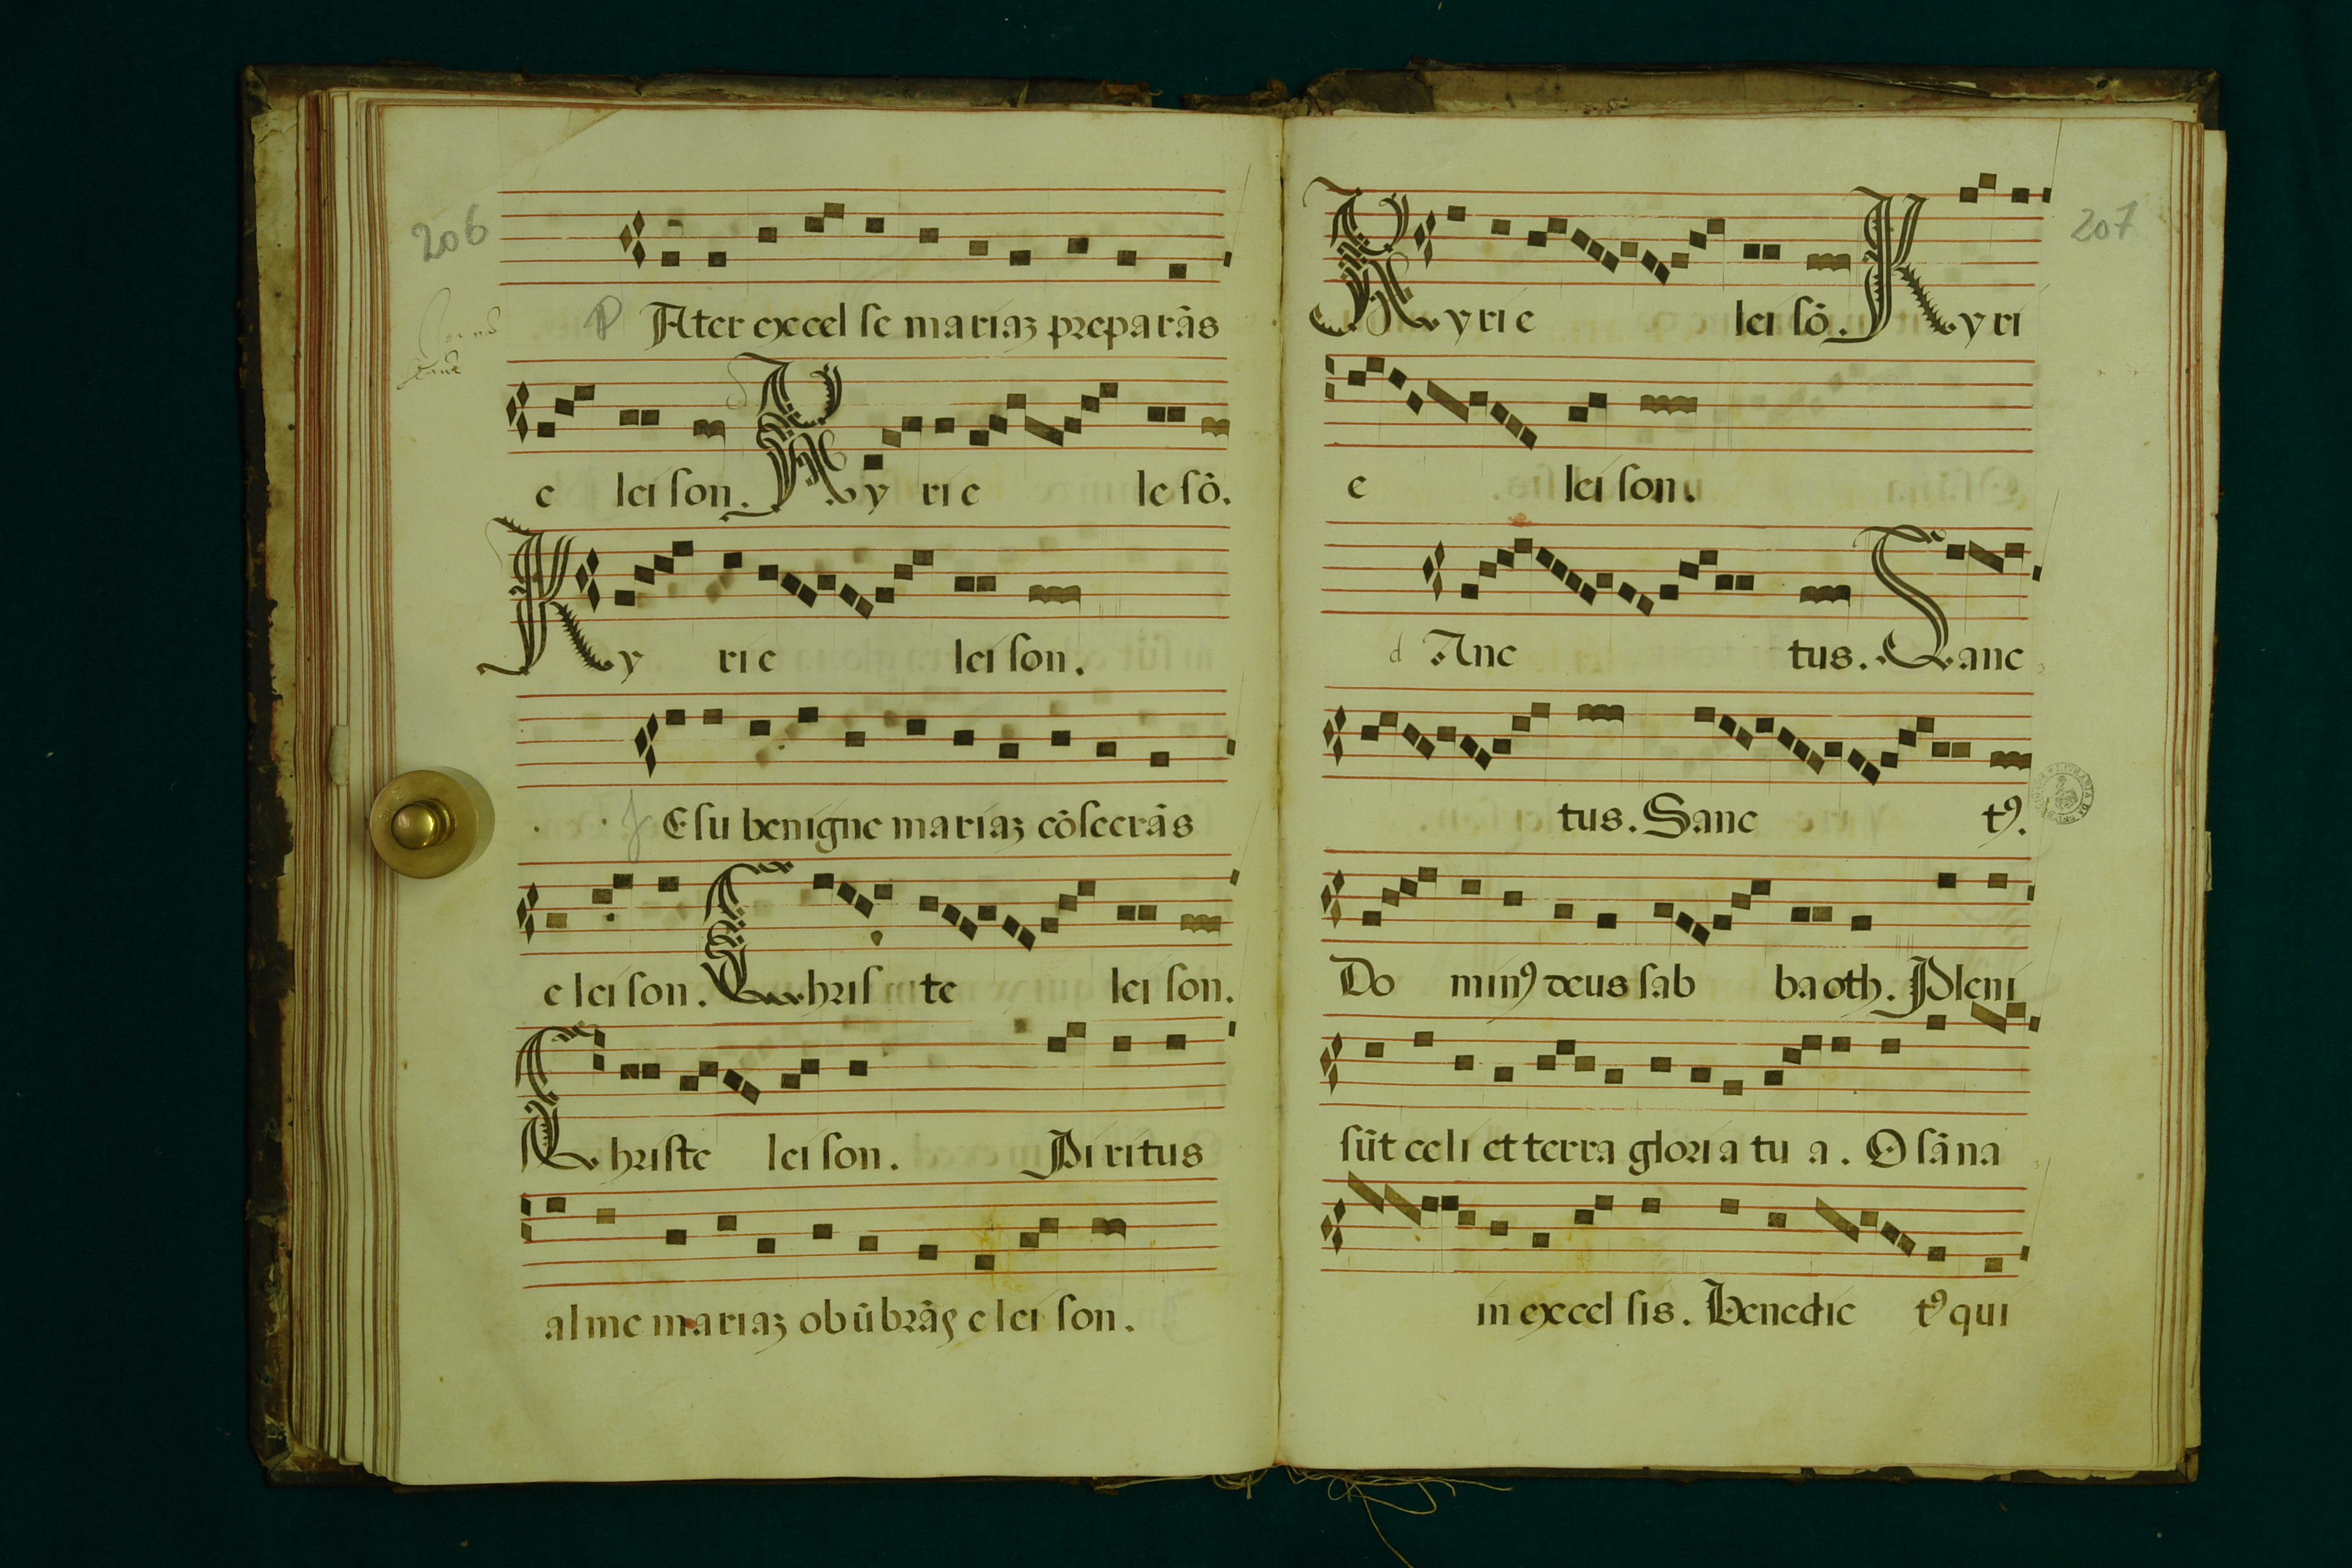 206
P Ater excel se mariaȝ preparās
e lei son. Ky rie le sō.
Ky rie lei son.
J Esu benigne mariaȝ cōsecrās
e lei son. Chris te lei son.
Christe lei son. Piritus
al me mariaȝ obūbrās e lei son.
207
Kyrie lei sō. Kyri
e lei son.
Anc tus. Sanc
tus. Sanc tꝰ.
Do minꝰ deus sab baoth. Pleni
sūt celi et terra gloria tu a. O sāna
in excel sis. Benedic tꝰ qui